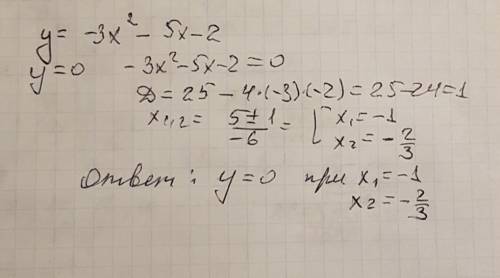 y = -3x² - 5x - 2
y = 0   -3x² - 5x - 2 = 0
D = 25 - 4·(-3)·(-2) = 25 - 24 = 1
x₁,₂ = (5 ± 1)/(-6) = [ x₁ = -1
x₂ = -2/3
Ответ: y = 0 при x₁ = -1
x₂ = -2/3